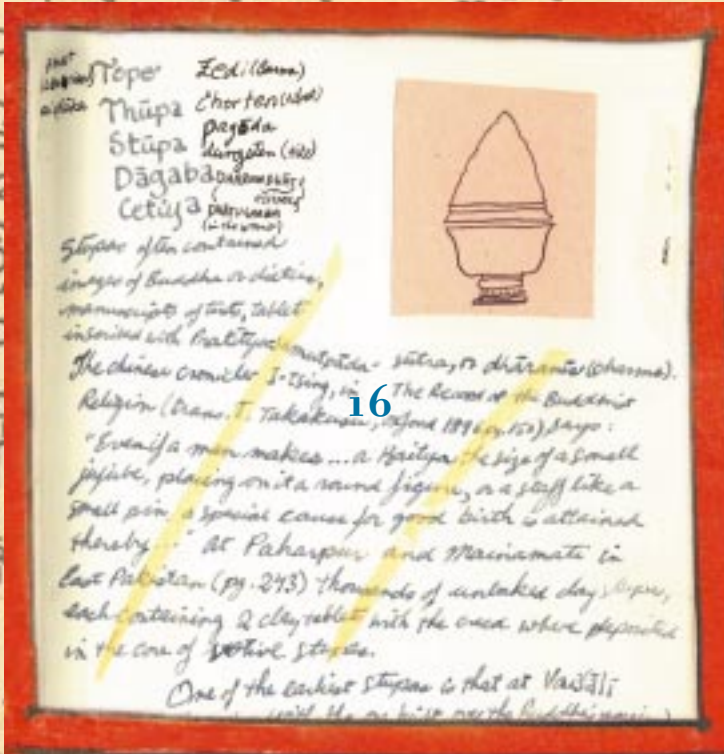 Tope Zedi (Burma)
Thūpa Chorten (tibet)
Stūpa pagoda
Dāgaba
Cetiya
(in the womb)
Stupas often contained
images of Buddha or dieties,
manuscripts of texts, tablet
inscribed with Pratītyasamutpāda-sūtra, or dhāranīs (charms).
The chinese cronicler I-tsing, in The Record of the Buddhist
Religion (trans. T. Takakusu, Oxford 1896, p. 150) says:
16
"Even if a man makes... a Kaitya the size of a small
jujube, placing on it a round figure, or a staff like a
small pin, a special cause for good birth is attained
thereby..." At Paharpur and Mainamati in
East Pakistan (pg. 243) thousands of unbaked clay stupas,
each containing 2 clay tablet with the creed where deposited
in the core of votive stupas.
One of the earliest stupas is that at Vaiśālī